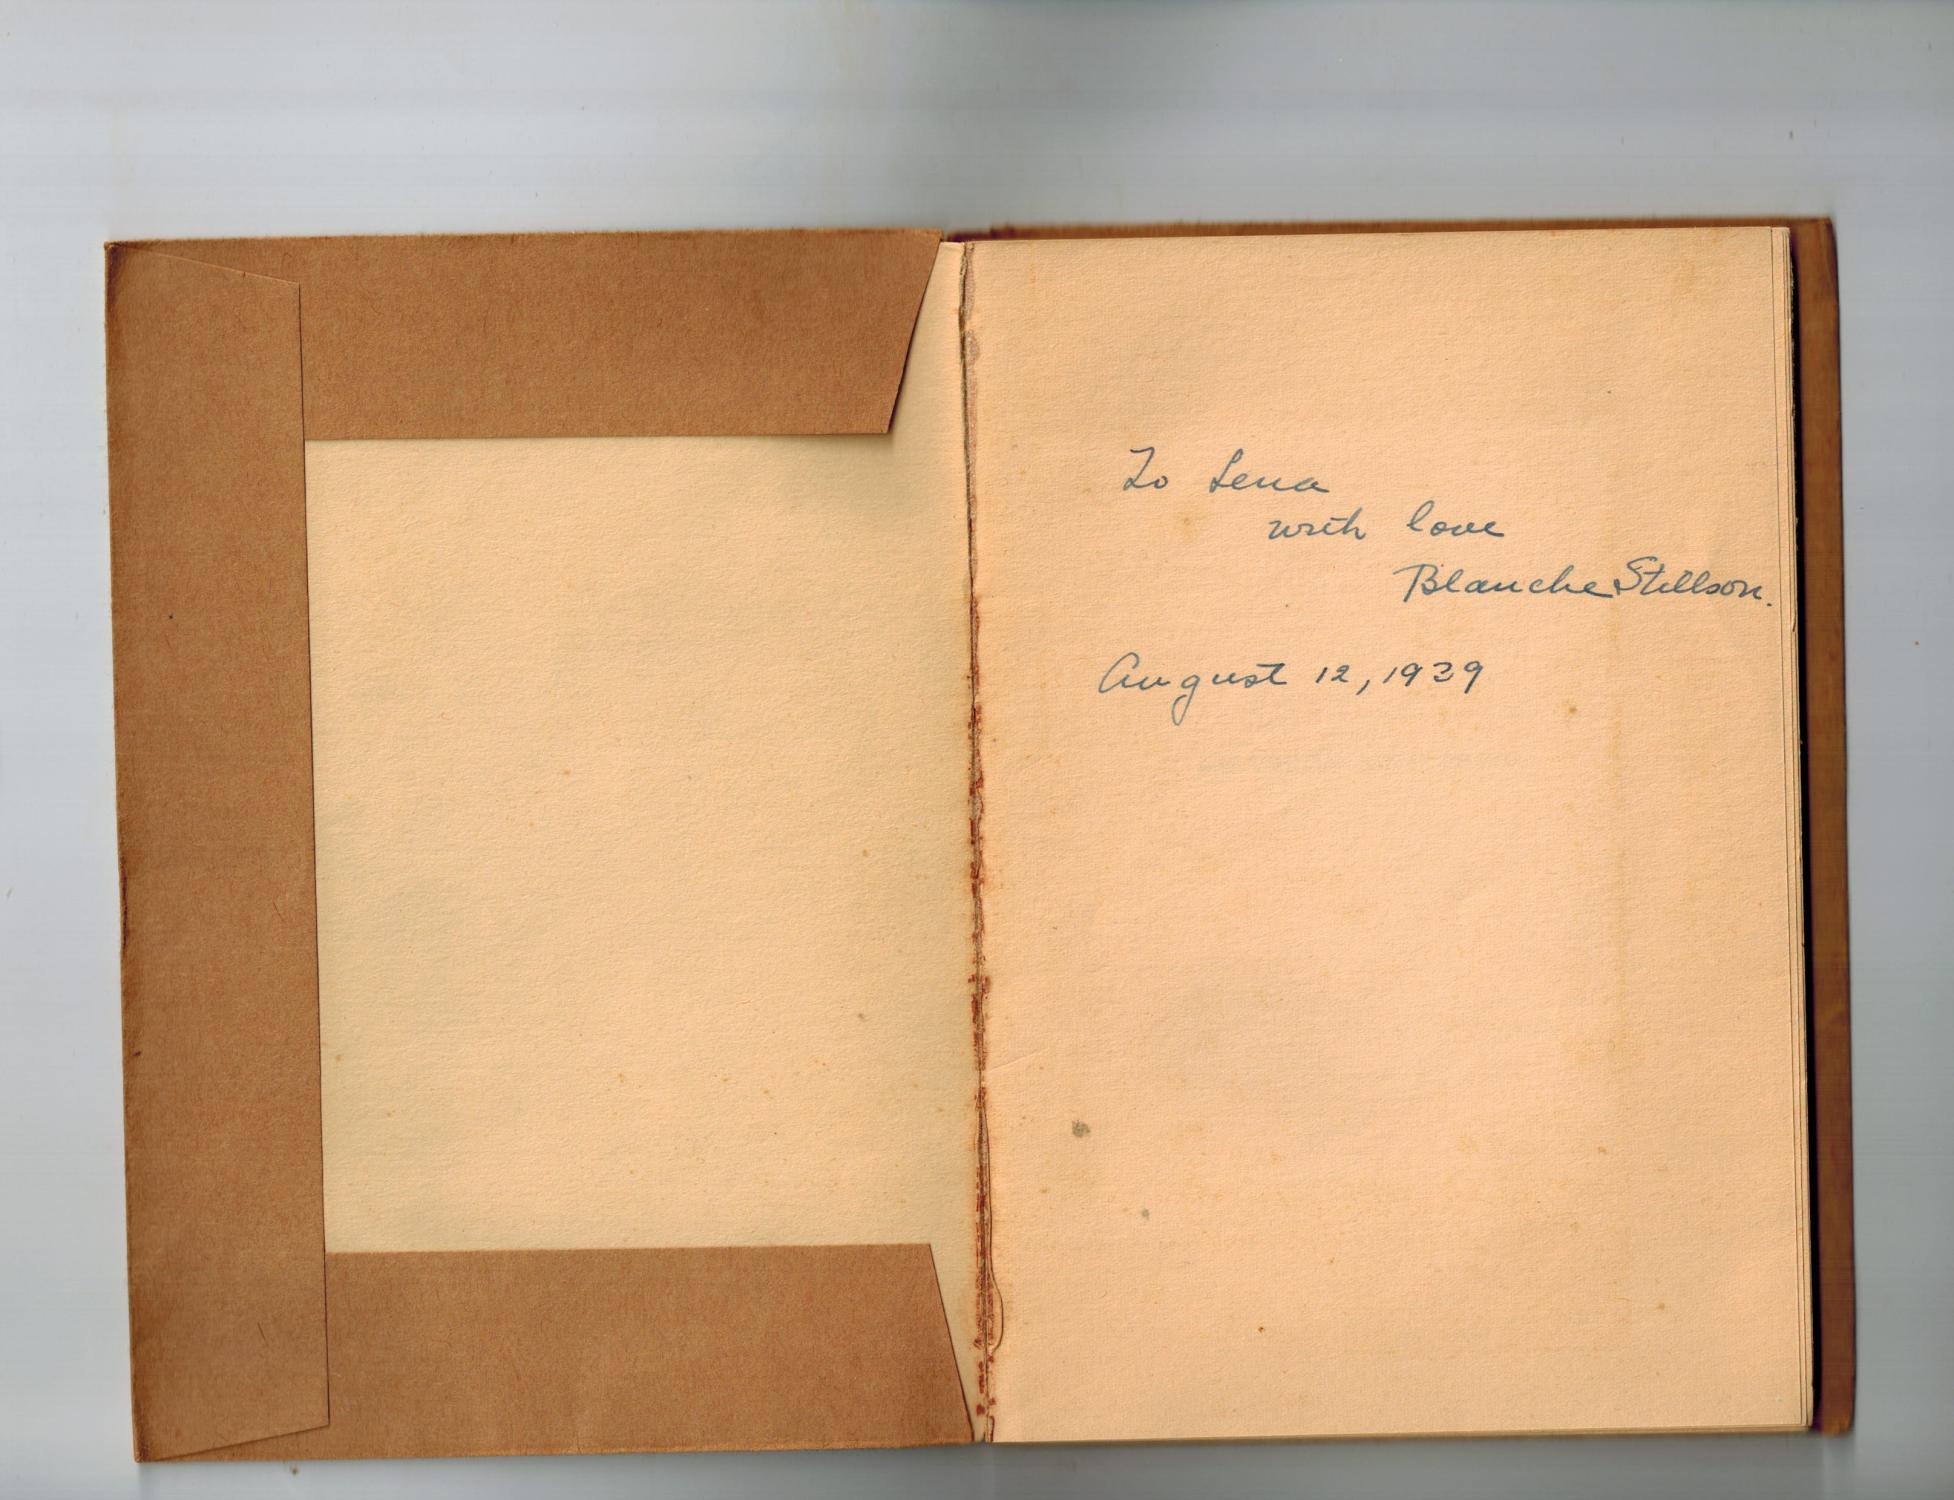 To Lena
with love
Blanche Stillson.
August 12, 1939